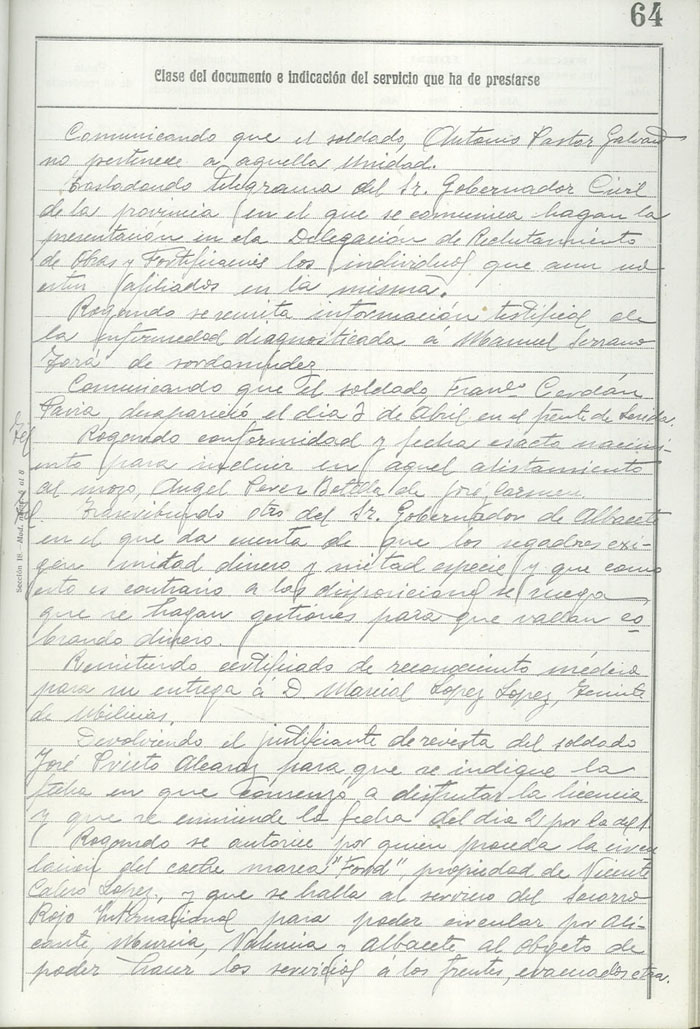 64
Clase del documento e indicación del servicio que ha de prestarse
Comunicando que el soldado, Antonio Pastor Galvañ
no pertenece a aquella Unidad.
Trasladando telegrama del Sr. Gobernador Civil
de la provincia (en el que se comunica hagan la
presentación en ela Delegación de Reclutamiento
de Obras y Fortificaciones los individuos que aun no
esten afiliados en la misma.
Rogando se remita información testifical de
la enfermedad diagnosticada á Manuel Serrano
de sordomudez
Comunicando que el soldado Franco Cerdán
Parra, desaparecio el dia 2 de Abril en el frente de Lerida.
Tel
Rogando conformidad y fecha exacta nacimi-
ento para incluir en aquel alistamiento
al mozo, Angel Perez Botella de José, Carmen.
Tel
otro del Sr. Gobernador de Albacete
en el que da cuenta de que los segadores exi-
gen mitad dinero y mitad especie y que como
esto es contrario a las disposiciones se ruega
que se hagan gestiones para que vallan co-
brando dinero.
Remitiendo certificado de reconociento médico
para su entrega á D. Marcial Lopez Lopez, Teniente
de Milicias.
Devolviendo el justificante de revista del soldado
José Prieto Alcaraz para que se indique la
fecha en que comenzó a disfrutar la licencia
y que se enmiende la fecha del dia 21 por la del 1.
Rogando se autorice por quien proceda la circu
lacion del coche marca "Ford", propiedad de Vicente
Calero Lopez, y que se halla al servicio del Socorro
Rojo Internacional para poder circular por Ali-
cante, Murcia, Valencia y Albacete al objeto de
poder hacer los servicios á los frentes, evacuados etra.